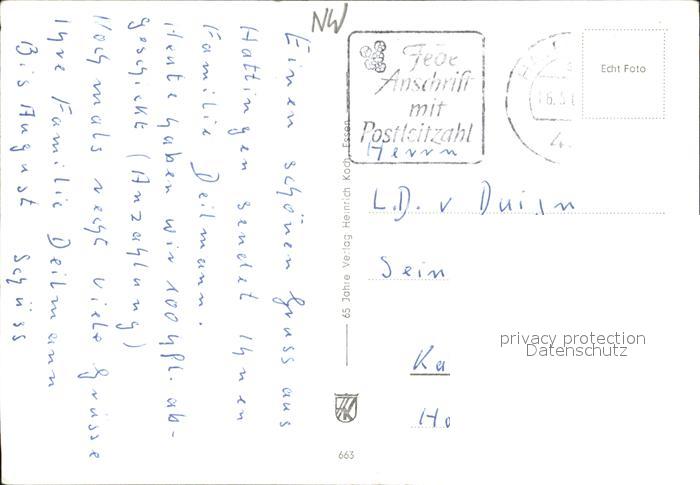 Einen schönen Gruss aus
Hattingen sendet Ihnen
Familie Deilmann.
Heute haben wir 100 hfl. ab-
geschickt (Anzahlung)
Nochmals recht viele Grüsse
Ihre Familie Deilmann
Bis August Schüss
NW
Jede
Anschrift
mit
Postleitzahl
Echt Foto
Herrn
L.D. v Duijn
Sein
Ka
Ho
65 Jahre Verlag Heinrich Koch, Essen
663
privacy protection
Datenschutz